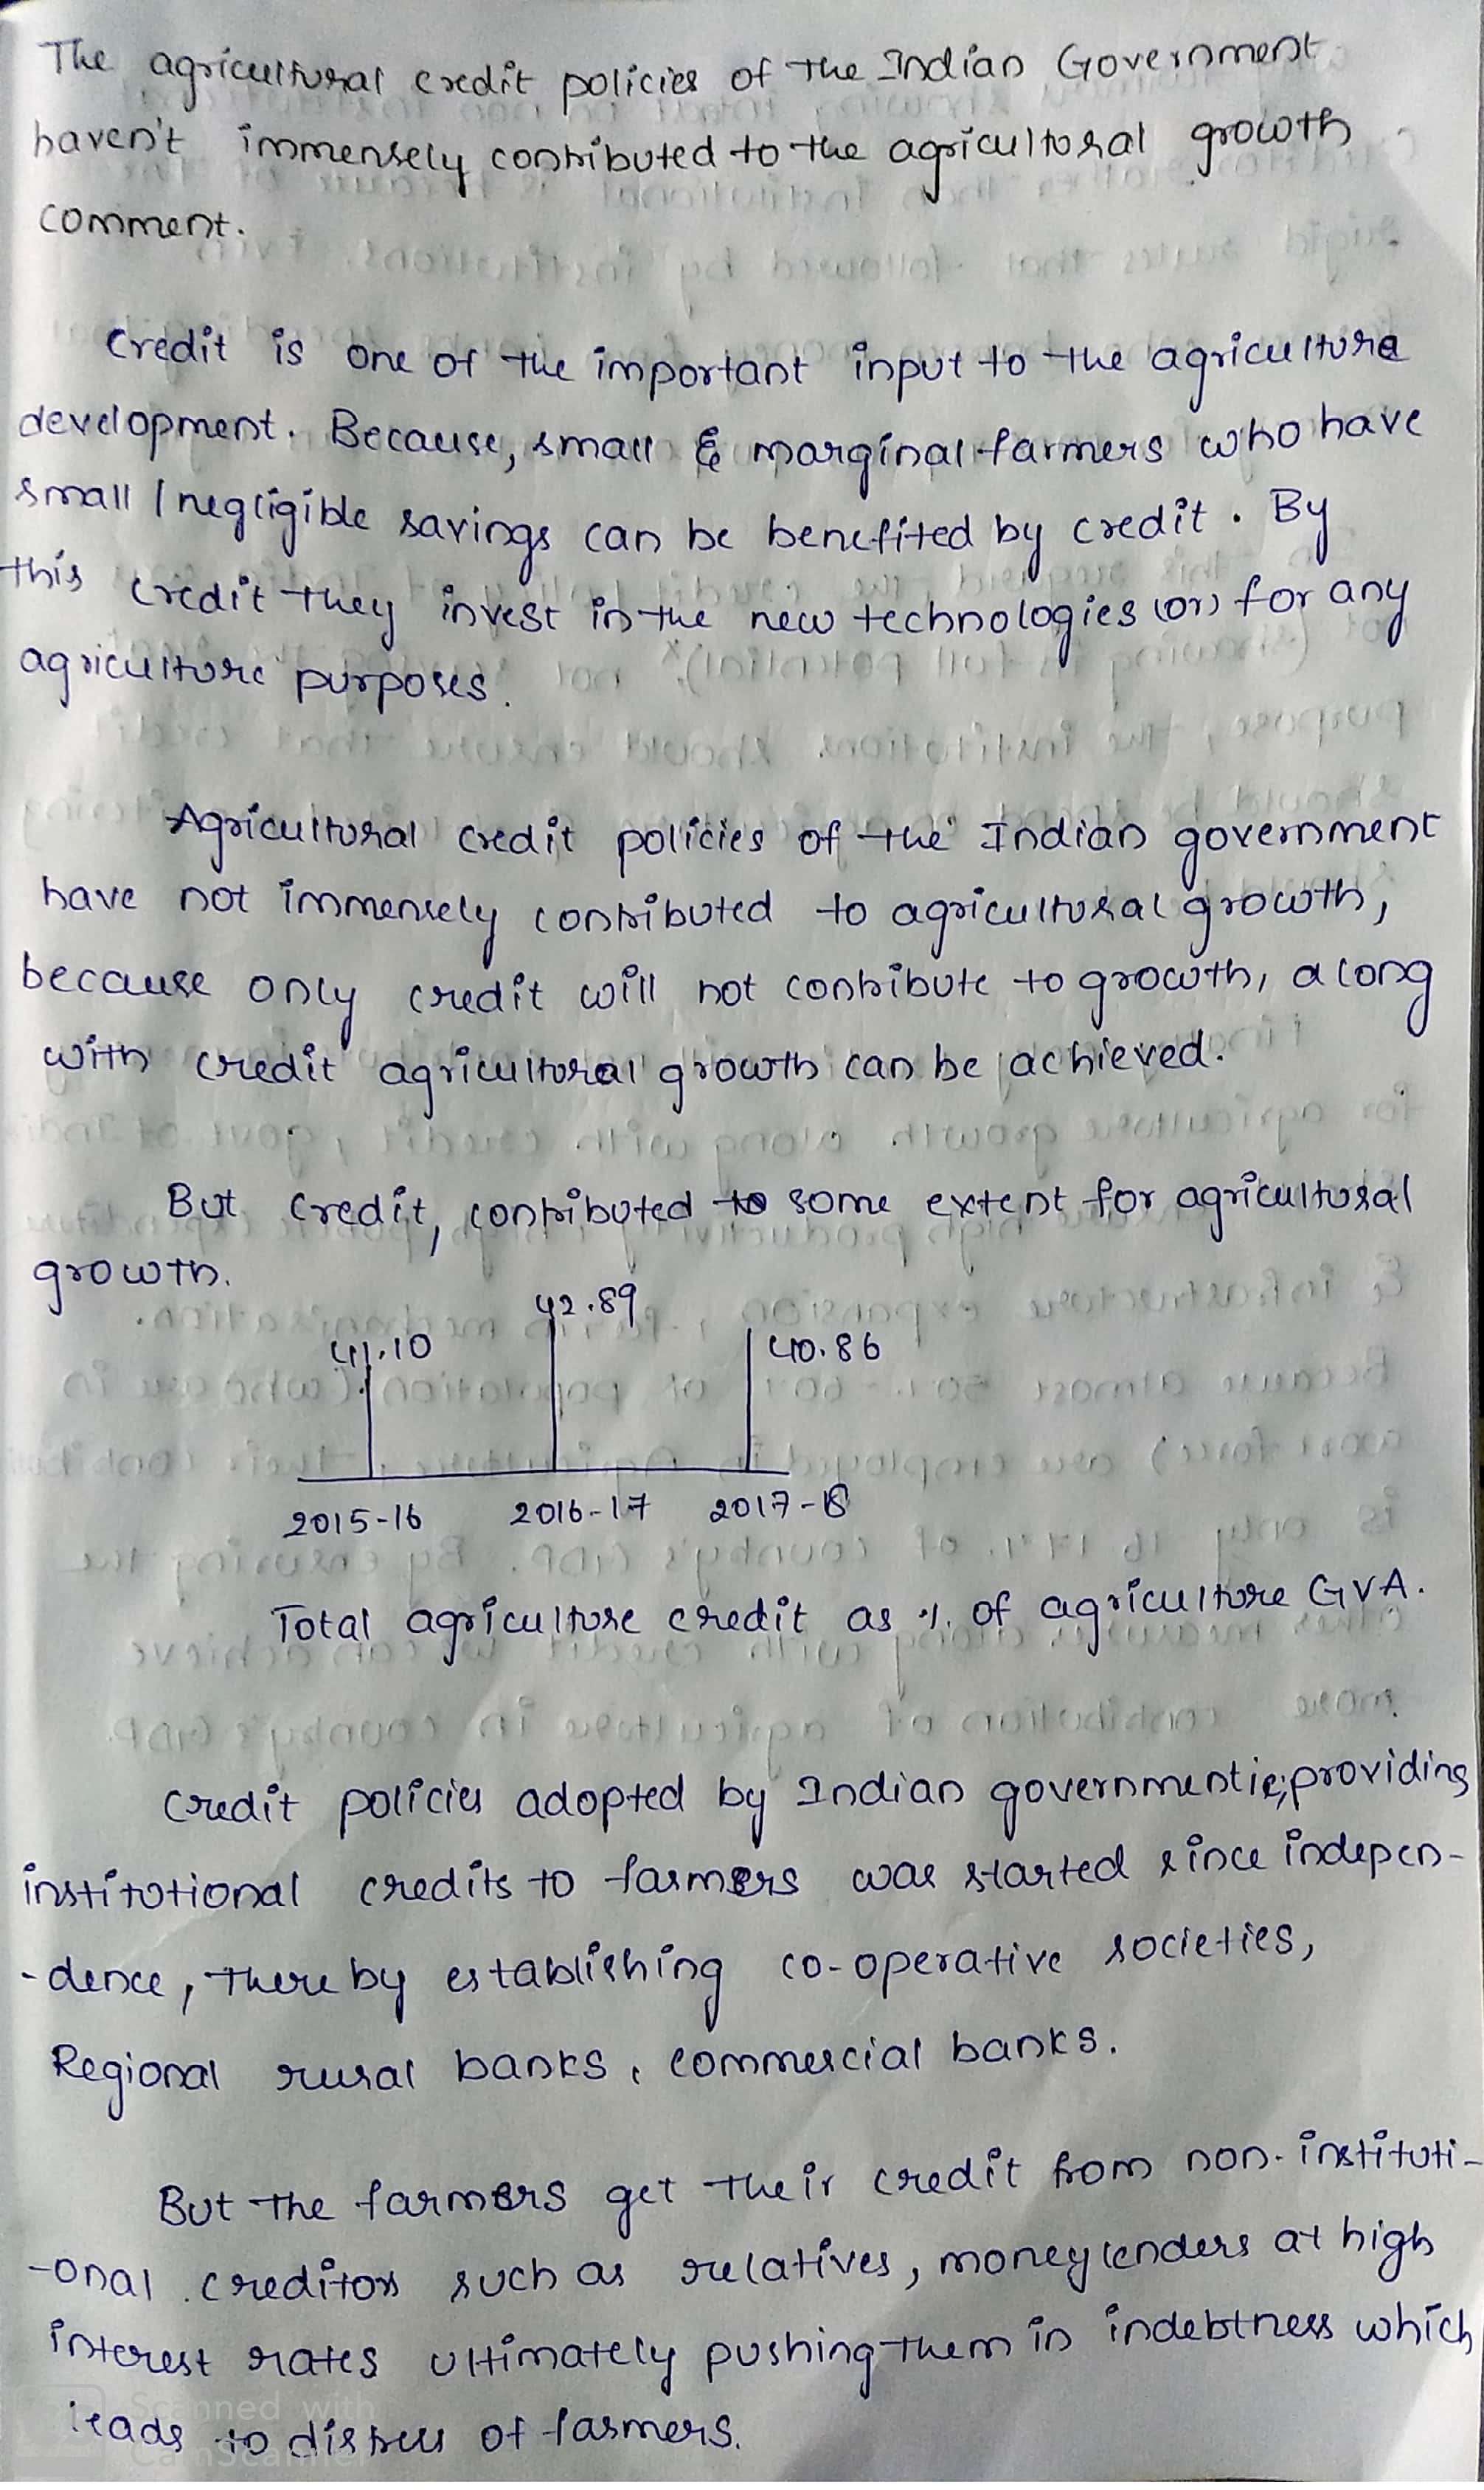 The agricultural credit policies of the Indian Government
haven't immensely contributed to the agricultural growth
comment.
Credit is one of the important input to the agriculture
development. Because, small & marginal farmers who have
small / negligible savings can be benefited by credit. By
this credit they invest in the new technologies (or) for any
agriculture purposes.
Agricultural credit policies of the Indian government
have not immensely contributed to agricultural growth,
because only credit will not contribute to growth, along
with credit agricultural growth can be achieved.
But credit, contributed to some extent for agricultural
growth.
42.89
41.10
40.86
2015-16 2016-17 2017-18
Total agriculture credit as %. of agriculture GVA.
Credit policies adopted by Indian government ie; providing
institutional credits to farmers was started since indepen-
-dence, there by establishing co-operative societies,
Regional rural banks, commercial banks.
But the farmers get their credit from non-instituti-
-onal creditors such as relatives, moneylenders at high
interest rates ultimately pushing them in indebtness which
leads to distress of farmers.
Scanned with
CamScanner